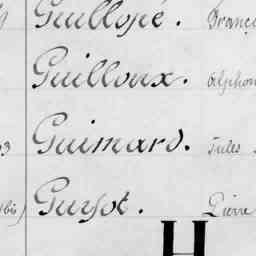 Guillopé. Franç
Guilloux. Alphon
Guimard. Jules
Guyot. Pierre
H